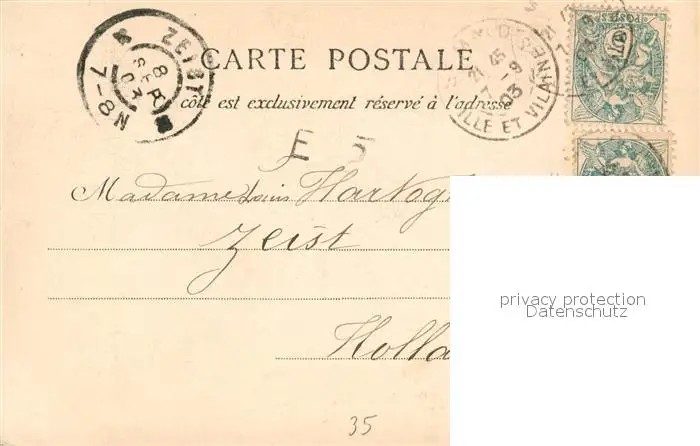 CARTE POSTALE
côté est exclusivement réservé à l'adresse
ZEIST
8
SEP
03
7-8N
ILLE ET VILAINE
POSTES
E 5
Madame Louis Hartog
Zeist
Holla
privacy protection
Datenschutz
35